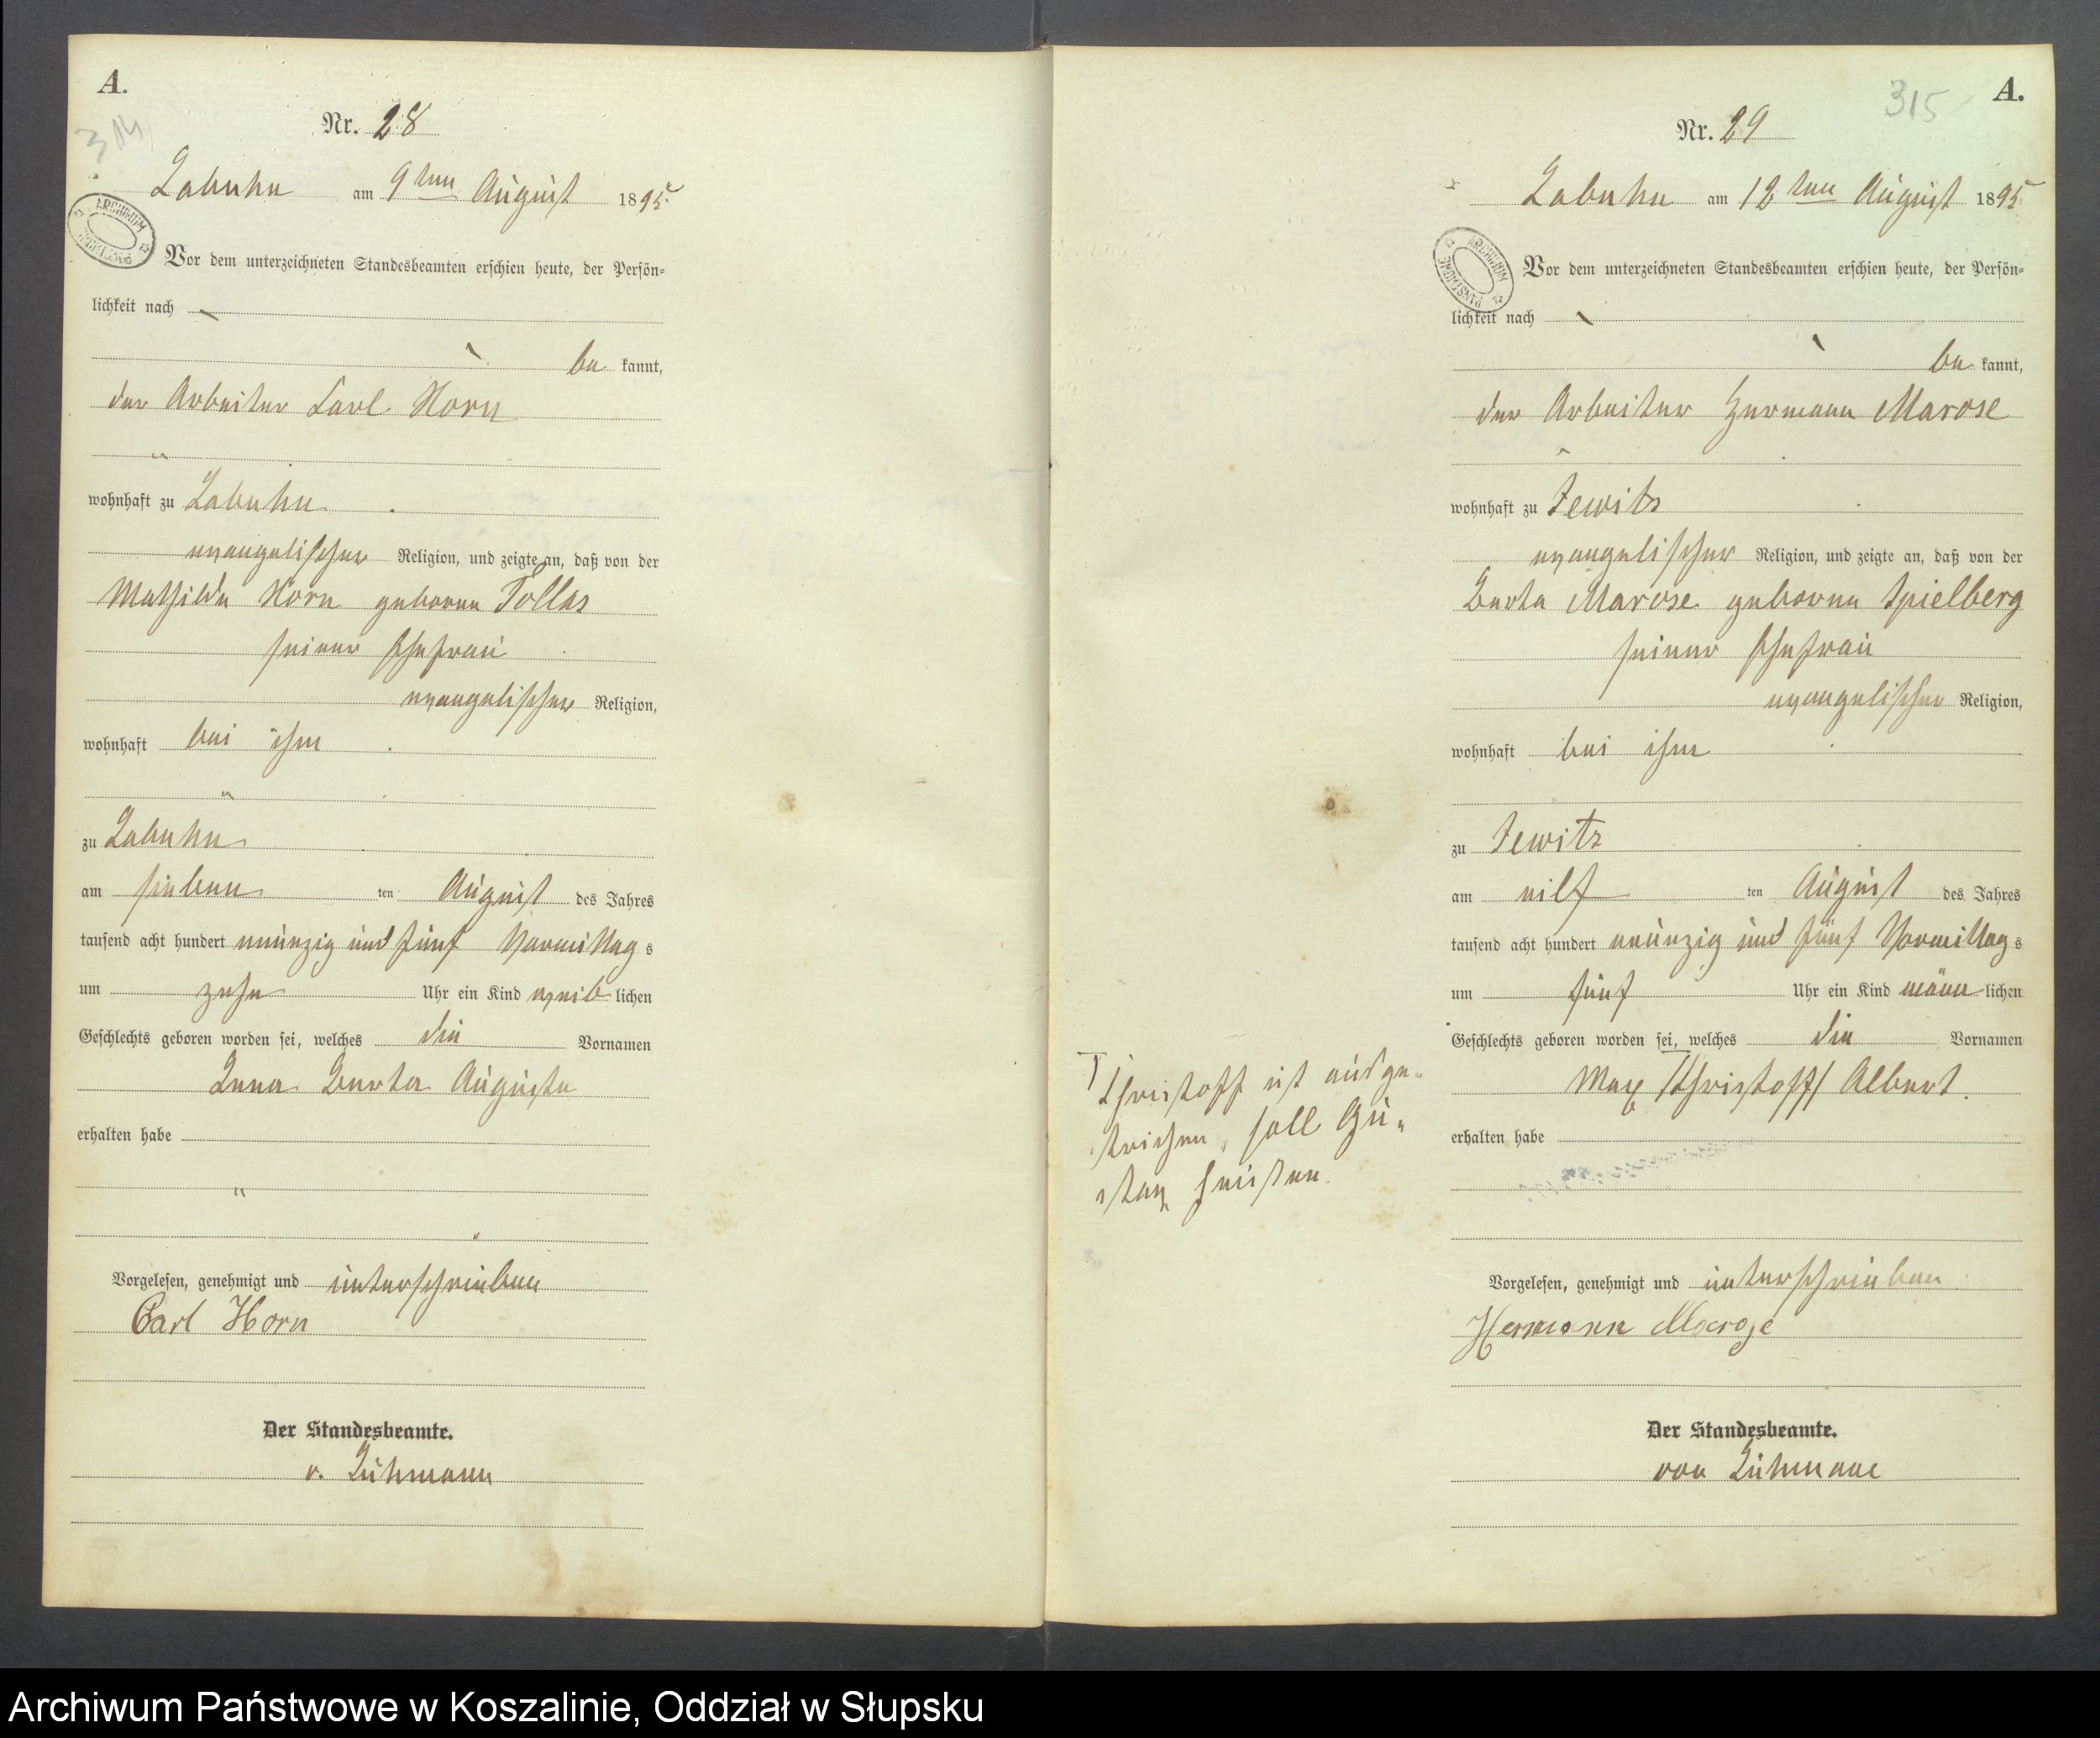 A.
314
Nr. 28
Labuhn am 9ten August 1895.
ARCHIWUM
Vor dem unterzeichneten Standesbeamten erschien heute, der Persön-
lichkeit nach
be kannt,
der Arbeiter Carl Horn
wohnhaft zu Labuhn
evangelischer Religion, und zeigte an, daß von der
Mathilde Horn geborene Tollas
seiner Ehefrau
evangelischer Religion,
wohnhaft bei ihm
zu Labuhn
am sieben ten August des Jahres
tausend acht hundert neunzig und fünf Vormittag s
um zehn Uhr ein Kind weib lichen
Geschlechts geboren worden sei, welches die Vornamen
Anna Berta Auguste
erhalten habe
Vorgelesen, genehmigt und unterschrieben
Carl Horn
Der Standesbeamte.
v. Lühmann
315
A.
Nr. 29
Labuhn am 12ten August 1895
ARCHIWUM PAŃSTWOWE
Vor dem unterzeichneten Standesbeamten erschien heute, der Persön-
lichkeit nach
be kannt,
der Arbeiter Hermann Marose
wohnhaft zu Jewitz
evangelischer Religion, und zeigte an, daß von der
Berta Marose geborne Spielberg
seiner Ehefrau
evangelischer Religion,
wohnhaft bei ihm
zu Jewitz
am eilf ten August des Jahres
tausend acht hundert neunzig und fünf Vormittag s
um fünf Uhr ein Kind männ lichen
Geschlechts geboren worden sei, welches die Vornamen
Max /Christoff/ Albert
erhalten habe
Christoff ist ausge-
strichen, soll Gu-
stav heißen.
Vorgelesen, genehmigt und unterschrieben
Hermann Marose
Der Standesbeamte.
von Lühmann
Archiwum Państwowe w Koszalinie, Oddział w Słupsku